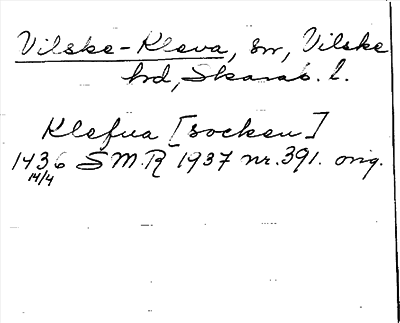 Vilske-Kleva, sn, Vilske
hd, Skarab. l.
Klefua [socken]
1436 SMR 1937 nr. 391. orig.
14/4